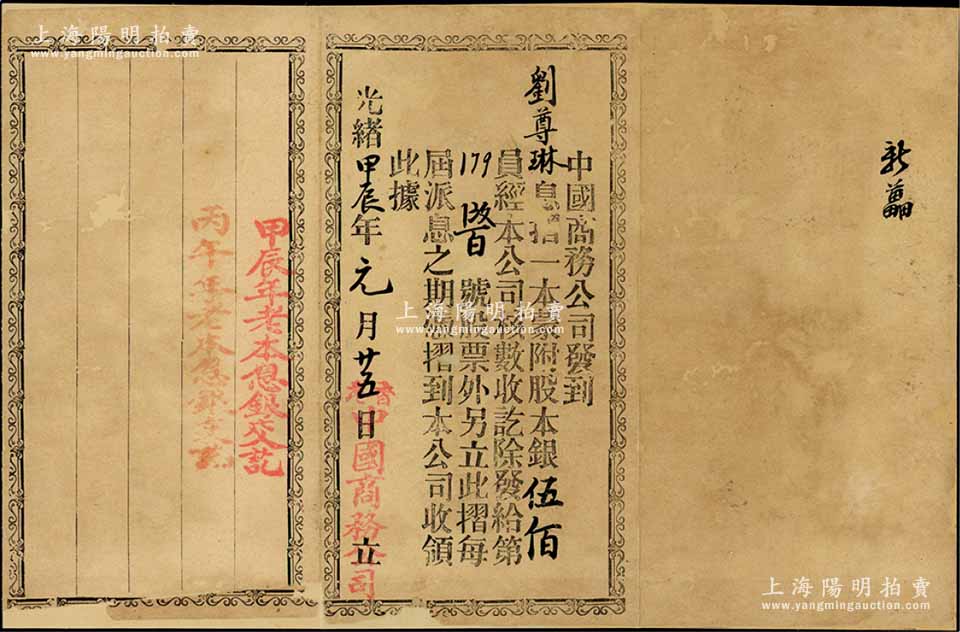 上海陽明拍賣
www.yangmingauction.com
中國商務公司發到
劉尊琳息摺一本蒙附股本銀伍佰
員經本公司核數收訖除發給第
179 號股票外另立此摺每
屆派息之期憑摺到本公司收領
此據
光緒甲辰年元月廿五日 立
香港中國商務公司
甲辰年老本息銀交訖
丙午年老本息銀交訖
上海陽明拍賣
www.yangmingauction.com
上海陽明拍賣
www.yangmingauction.com